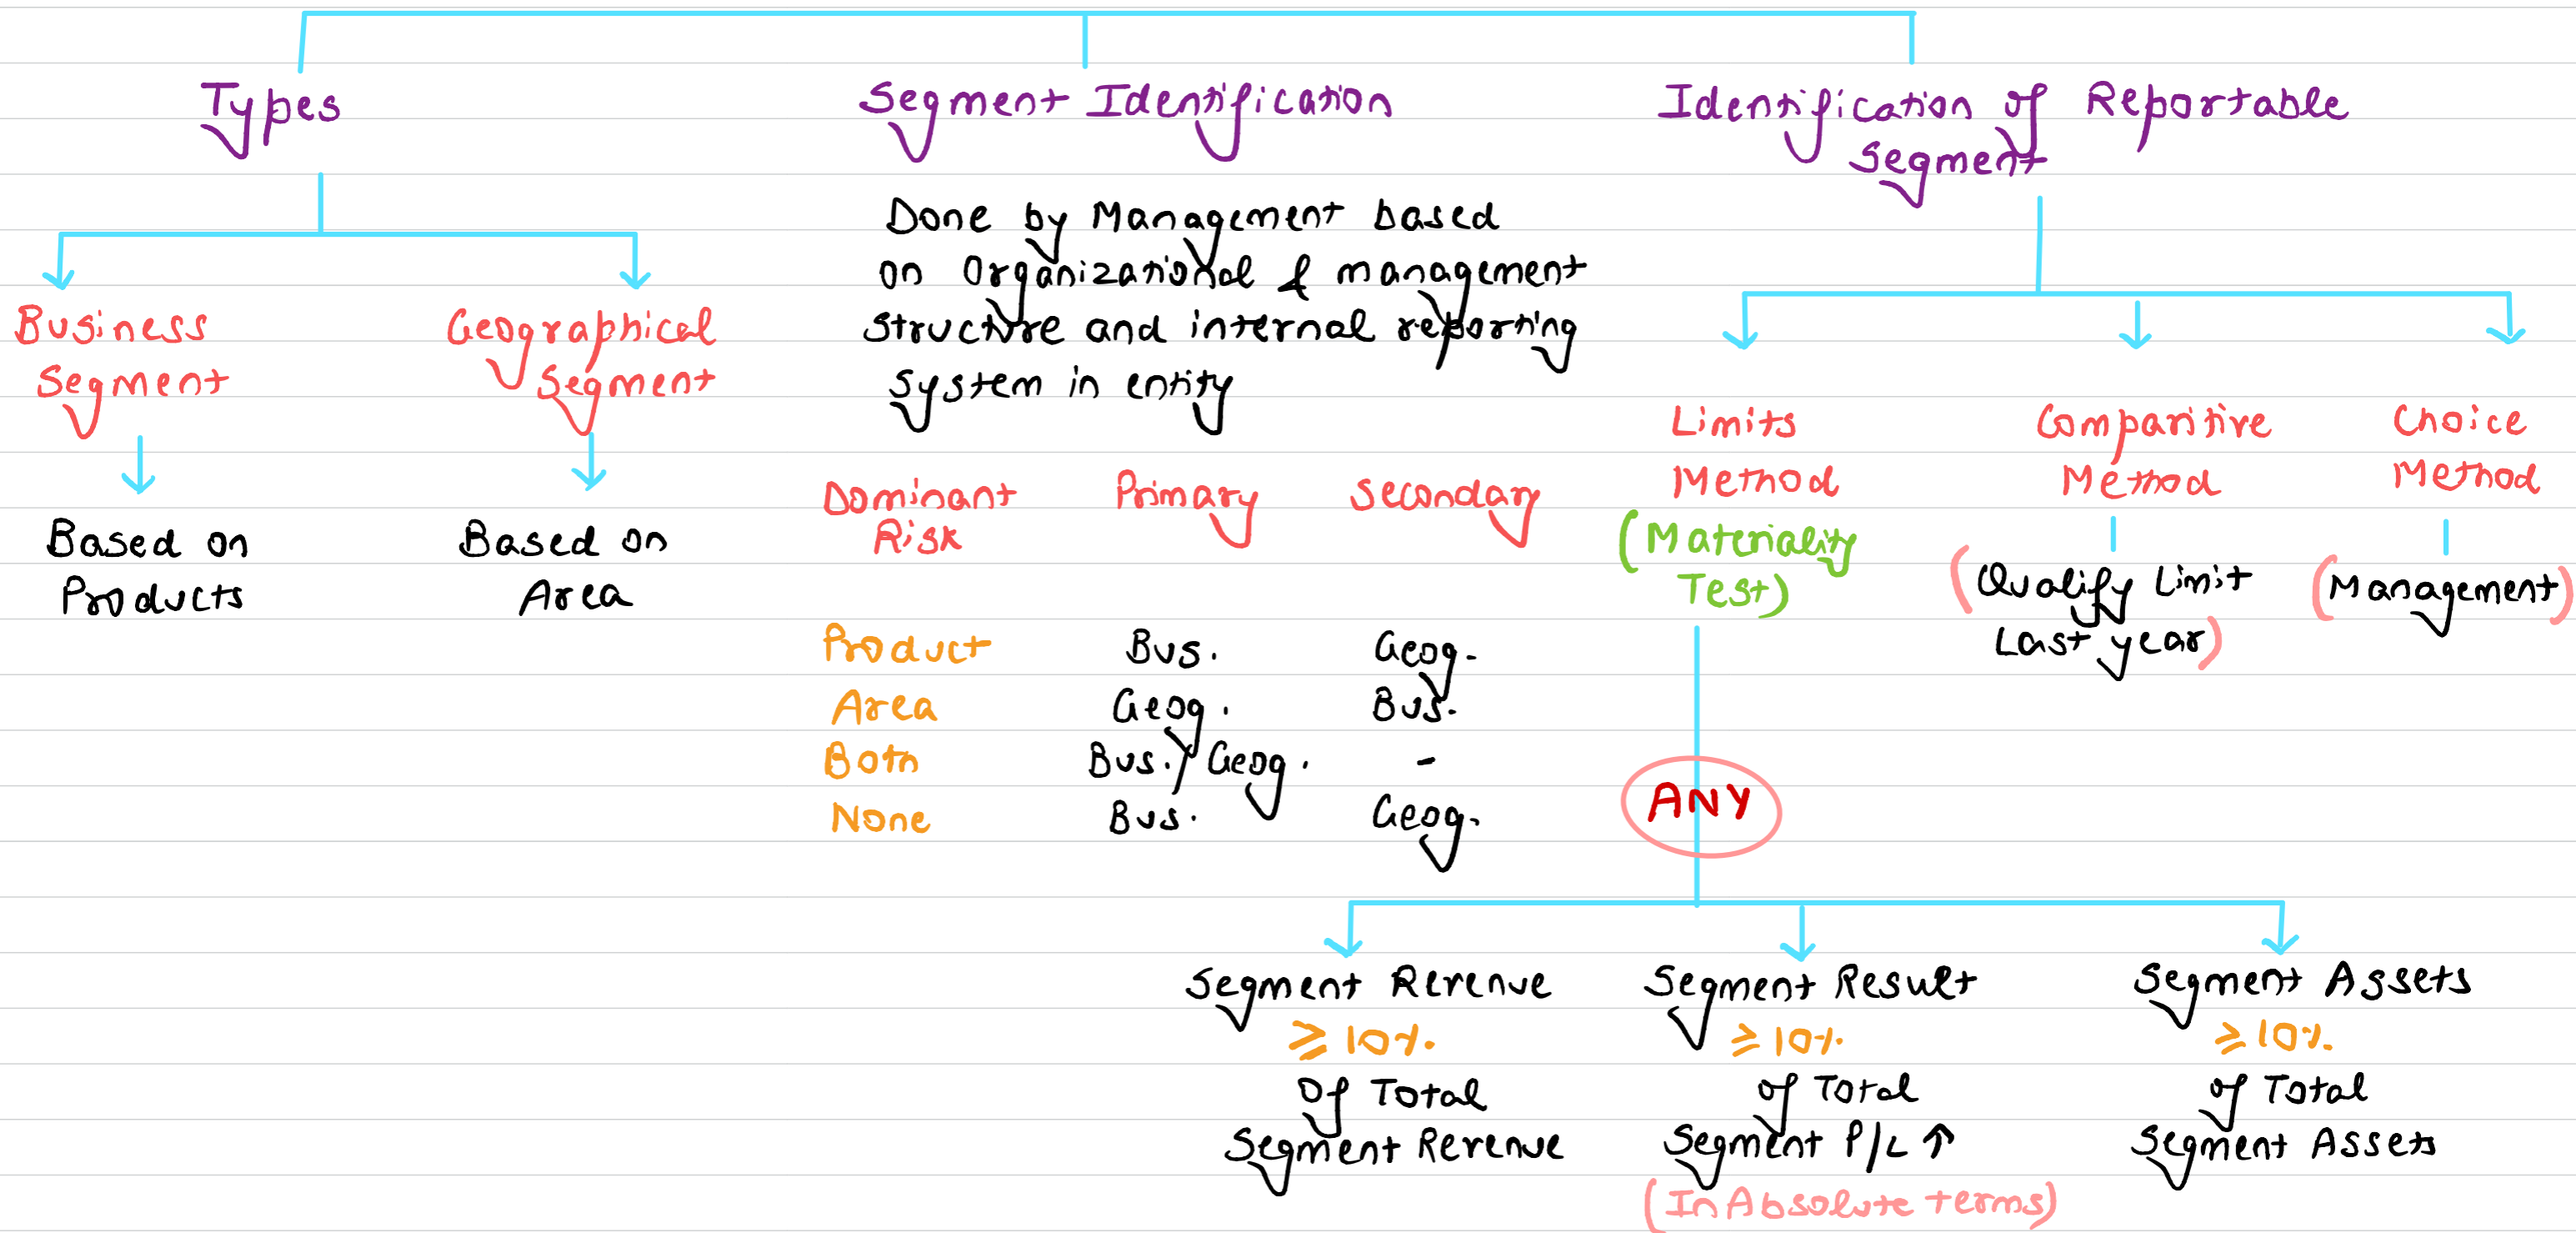 Types
Business
Segment
Based on
Products
Geographical
Segment
Based on
Area
Segment Identification
Done by Management based
on Organizational & management
structure and internal reporting
system in entity
Dominant Risk Primary Secondary
Product Bus. Geog.
Area Geog. Bus.
Both Bus./Geog. -
None Bus. Geog.
Identification of Reportable
Segment
Limits
Method
(Materiality
Test)
Comparitive
Method
(Qualify Limit
Last year)
Choice
Method
(Management)
ANY
Segment Revenue
≥ 10%.
Of Total
Segment Revenue
Segment Result
≥ 10%.
of Total
Segment P/L ↑
(In Absolute terms)
Segment Assets
≥ 10%.
of Total
Segment Assets